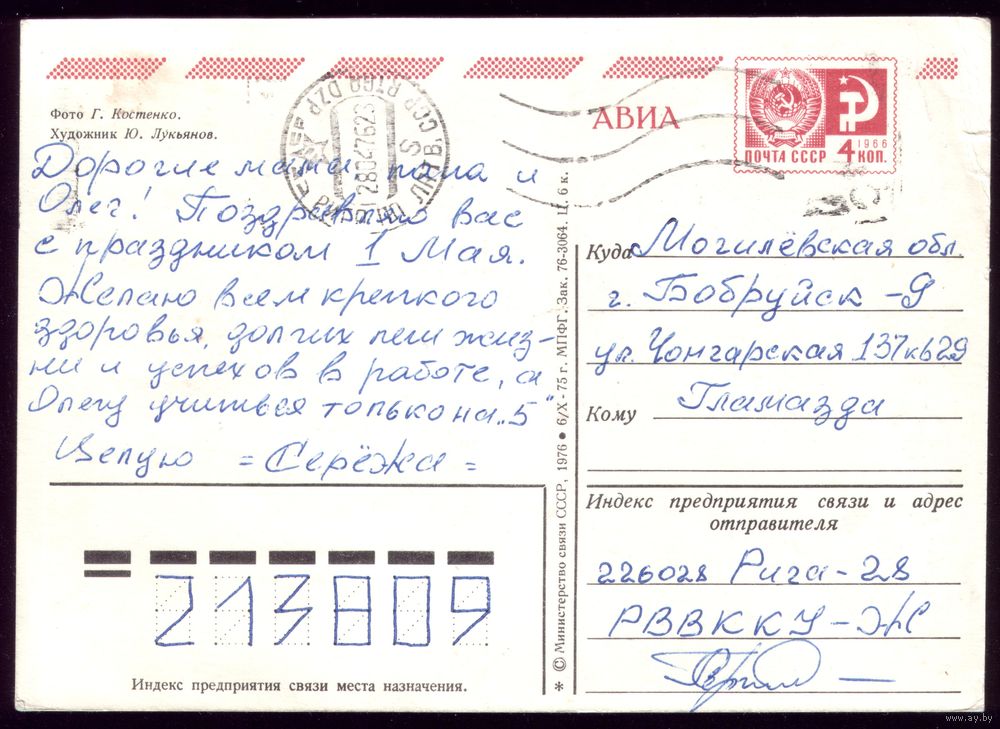 Фото Г. Костенко.
Художник Ю. Лукьянов.
АВИА
ПОЧТА СССР 4 КОП.
1966
Дорогие мама, папа и
Олег! Поздравляю вас
с праздником 1 Мая.
Желаю всем крепкого
здоровья, долгих лет жиз-
ни и успехов в работе, а
Олегу учиться только на „5"
Целую = Серёжа =
Куда Могилёвская обл.
г. Бобруйск -9
ул. Чонгарская 137 кв 29
Кому Гламазда
Индекс предприятия связи и адрес
отправителя
226028 Рига-28
РВВККУ-Ж
213809
Индекс предприятия связи места назначения.
* © Министерство связи СССР, 1976 • 6/X - 75 г. МПФГ. Зак. 76-3064. Ц. 6 к.
www.ay.by